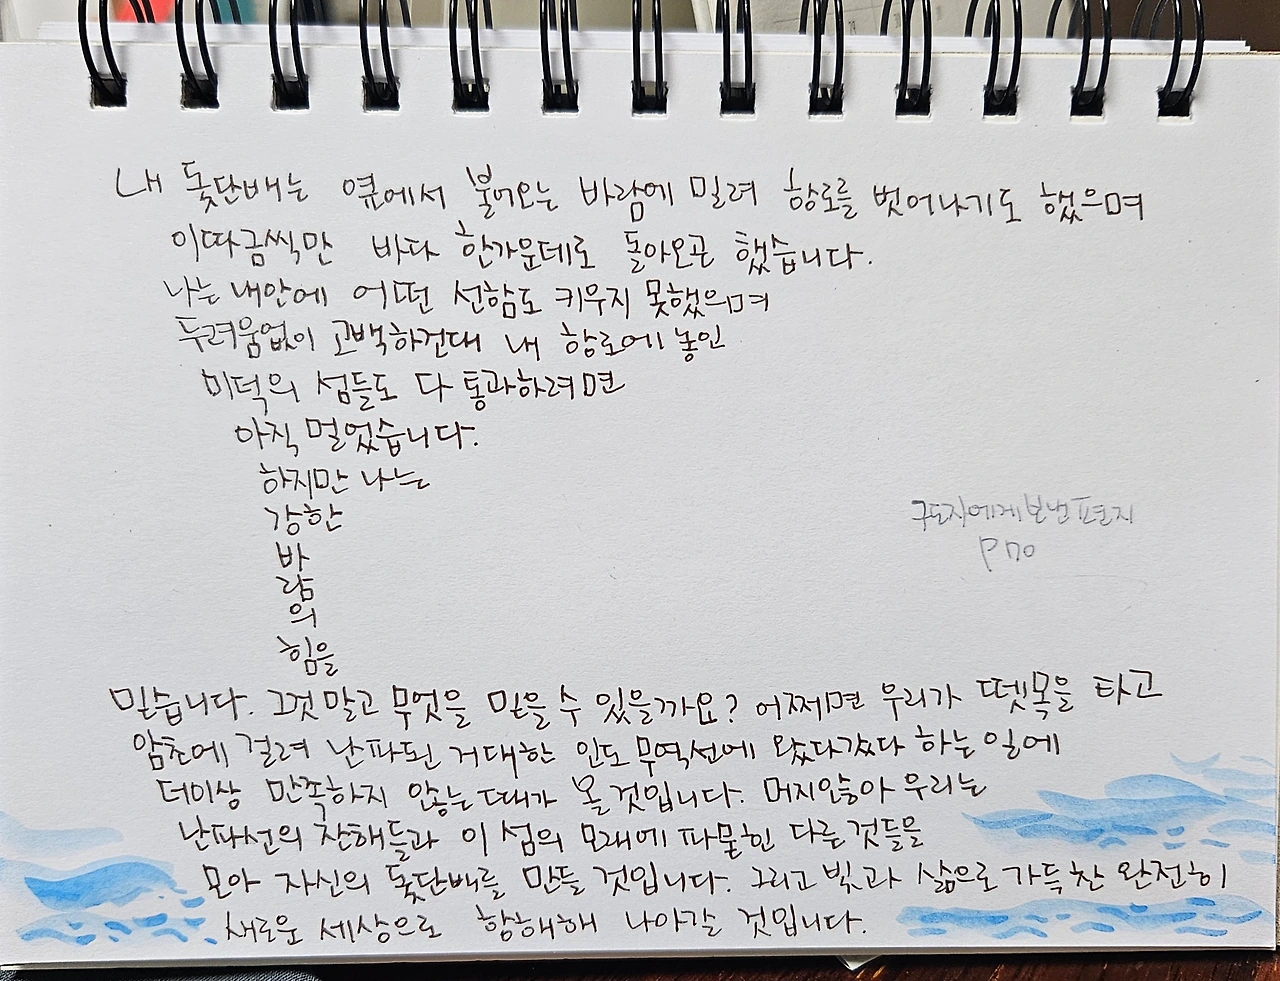 내 돛단배는 옆에서 불어오는 바람에 밀려 항로를 벗어나기도 했으며
이따금씩만 바다 한가운데로 돌아오곤 했습니다.
나는 내안에 어떤 선함도 키우지 못했으며
두려움없이 고백하건대 내 항로에 놓인
미덕의 섬들도 다 통과하려면
아직 멀었습니다.
하지만 나는
강한
바
람
의
힘을
구도자에게 보낸 편지
P 170
믿습니다. 그것 말고 무엇을 믿을 수 있을까요? 어쩌면 우리가 뗏목을 타고
암초에 걸려 난파된 거대한 인도 무역선에 왔다갔다 하는 일에
더이상 만족하지 않는 때가 올 것입니다. 머지않아 우리는
난파선의 잔해들과 이 섬의 모래에 파묻힌 다른 것들을
모아 자신의 돛단배를 만들 것입니다. 그리고 빛과 삶으로 가득찬 완전히
새로운 세상으로 항해해 나아갈 것입니다.